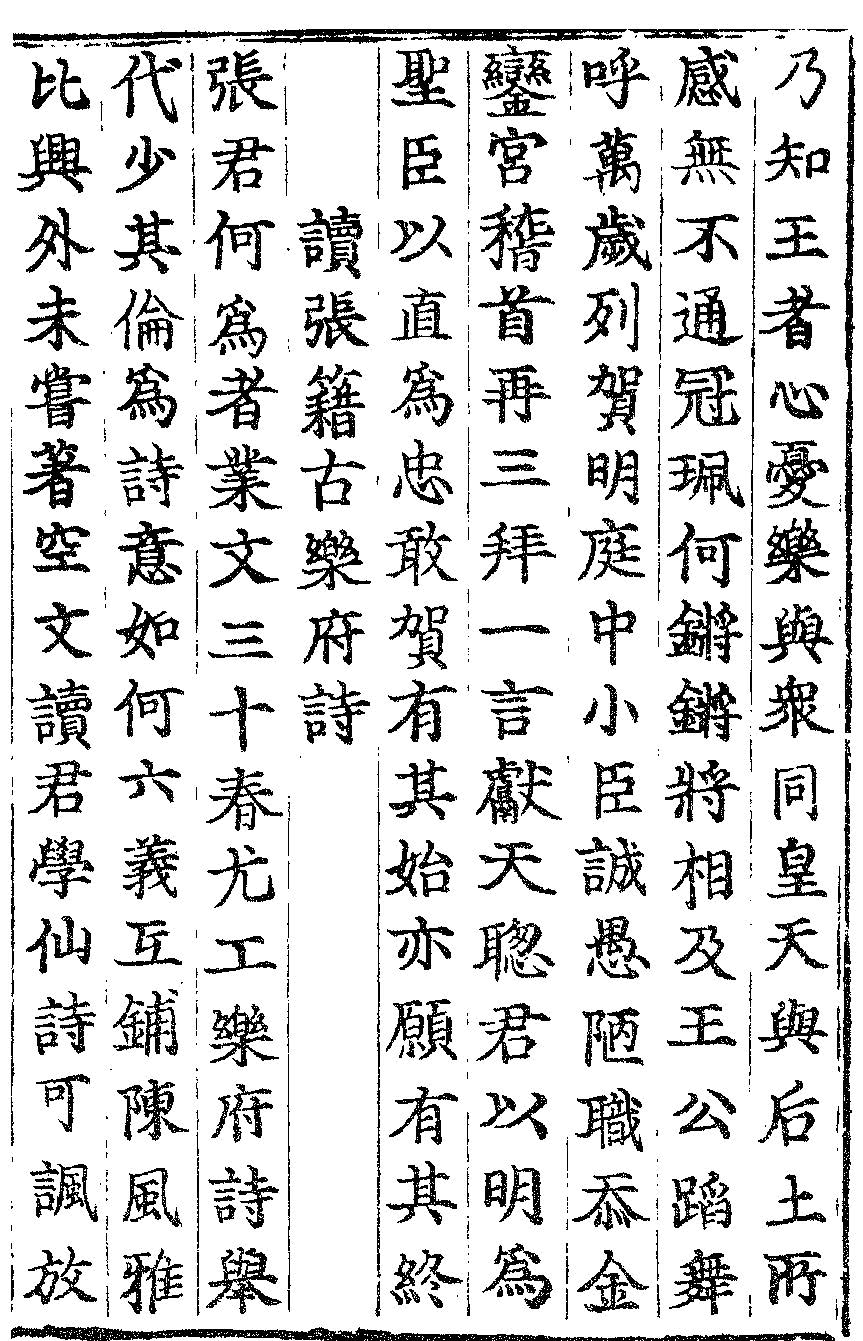 乃知王者心憂樂與衆同皇天與后土所
感無不通冠珮何鏘鏘將相及王公蹈舞
呼萬歲列賀明庭中小臣誠愚陋職忝金
鑾宮稽首再三拜一言獻天聦君以明爲
聖臣以直爲忠敢賀有其始亦願有其終
讀張籍古樂府詩
張君何爲者業文三十春尤工樂府詩舉
代少其倫爲詩意如何六義互鋪陳風雅
比興外未嘗著空文讀君學仙詩可諷放